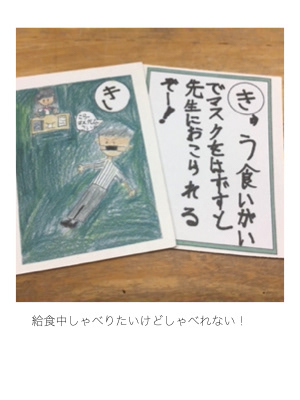 き
きゅう食いがい
でマスクをはずすと
先生におこられる
ぞー!
給食中しゃべりたいけどしゃべれない！